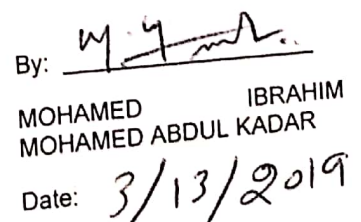 By:
MOHAMED IBRAHIM
MOHAMED ABDUL KADAR
Date: 3/13/2019